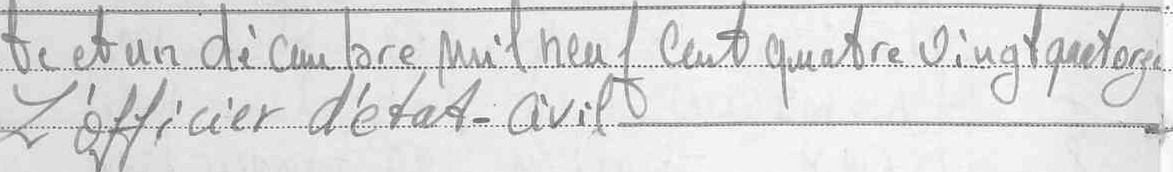 te et un décembre mil neuf cent quatre vingt quatorze
L'officier d'état-civil